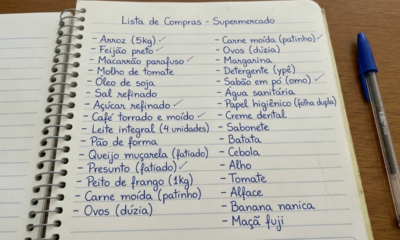 Lista de Compras - Supermercado
- Arroz (5kg) ✓
- Feijão preto ✓
- Macarrão parafuso ✓
- Molho de tomate
- Óleo de soja
- Sal refinado
- Açúcar refinado ✓
- Café torrado e moído ✓
- Leite integral (4 unidades)
- Pão de forma
- Queijo muçarela (fatiado)
- Presunto (fatiado) ✓
- Peito de frango (1kg)
- Carne moída (patinho)
- Ovos (dúzia)
- Carne moída (patinho) ✓
- Ovos (dúzia)
- Margarina
- Detergente (ypê)
- Sabão em pó (omo) ✓
- Água sanitária
- Papel higiênico (folha dupla)
- Creme dental
- Sabonete
- Batata
- Cebola
- Alho
- Tomate
- Alface
- Banana nanica
- Maçã fuji